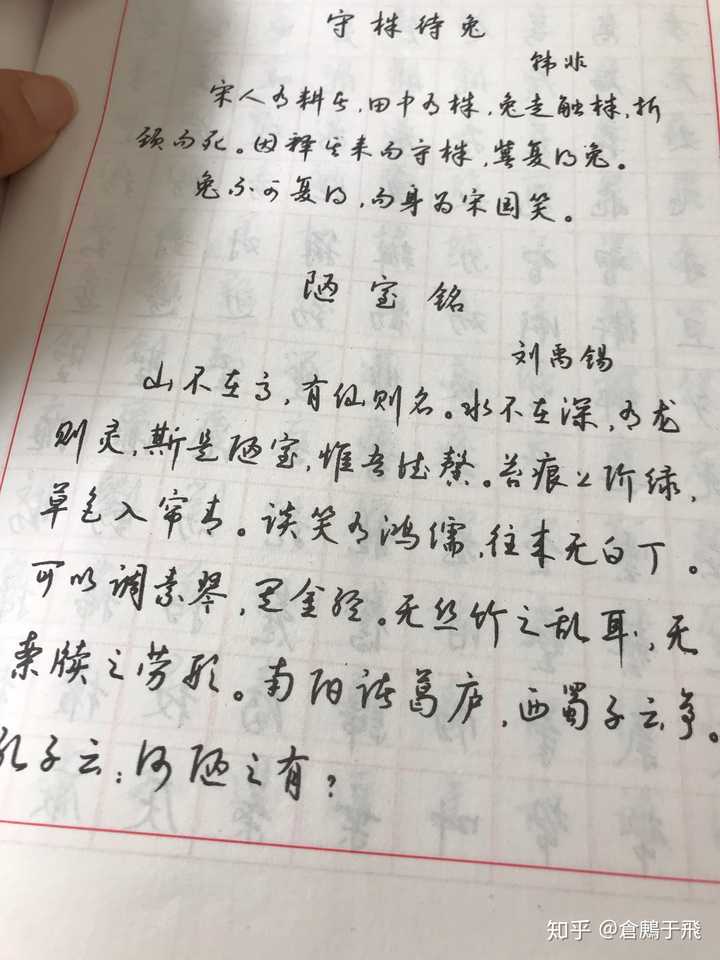 守株待兔
韩非
宋人有耕者,田中有株,兔走触株,折
颈而死。因释其耒而守株,冀复得兔。
兔不可复得,而身为宋国笑。
陋室铭
刘禹锡
山不在高,有仙则名。水不在深,有龙
则灵,斯是陋室,惟吾德馨。苔痕上阶绿,
草色入帘青。谈笑有鸿儒,往来无白丁。
可以调素琴,阅金经。无丝竹之乱耳,无
案牍之劳形。南阳诸葛庐,西蜀子云亭。
孔子云:何陋之有?
知乎 @倉鶊于飛